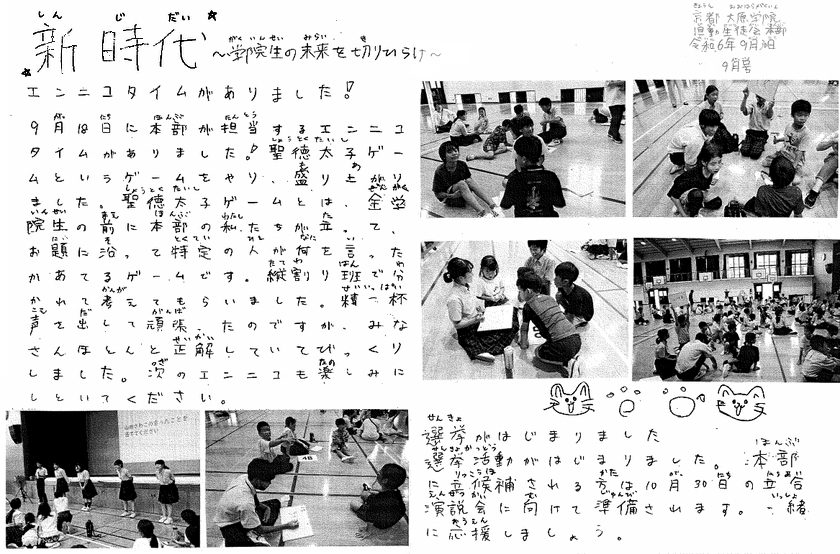 新時代
～学院生の未来を切りひらけ～
京都大原学院
運動生徒会本部
令和6年9月
9月号
エンニコタイムがありました！
9月18日に本部が担当するエンニコ
タイムがありました！聖徳太子ゲー
ムというゲームをやり、盛り上がり
ました。聖徳太子ゲームとは、全学
院生の前に本部の私たちが立って、
お題に沿って特定の人が何を言った
かあてるゲームです。縦割り班で分
かれて考えてもらいました。精一杯
声を出して頑張ったのですが、みな
さんほとんど正解していてびっくり
しました。次のエンニコも楽しみに
しといてください。
選挙がはじまりました
選挙活動がはじまりました。本部
に立候補される方は10月30日の立合
演説会に向けて準備されます。一緒
に応援しましょう。